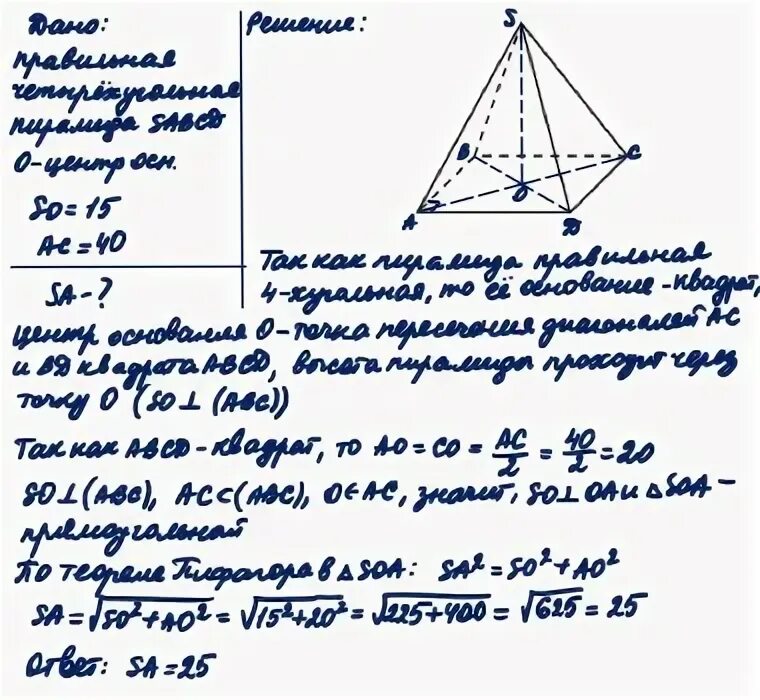 Дано:
правильная
четырёхугольная
пирамида SABCD
O-центр осн.
SO=15
AC=40
SA-?
Решение:
S
B
C
O
A
D
Так как пирамида правильная
4-хугольная, то её основание-квадрат,
центр основания O-точка пересечения диагоналей AC
и BD квадрата ABCD, высота пирамиды проходит через
точку O (SO⊥(ABC))
Так как ABCD-квадрат, то AO=CO=AC/2=40/2=20
SO⊥(ABC), AC⊂(ABC), O∈AC, значит, SO⊥OA и △SOA-
прямоугольный
По теореме Пифагора в △SOA: SA²=SO²+AO²
SA=√(SO²+AO²)=√(15²+20²)=√(225+400)=√625=25
Ответ: SA=25